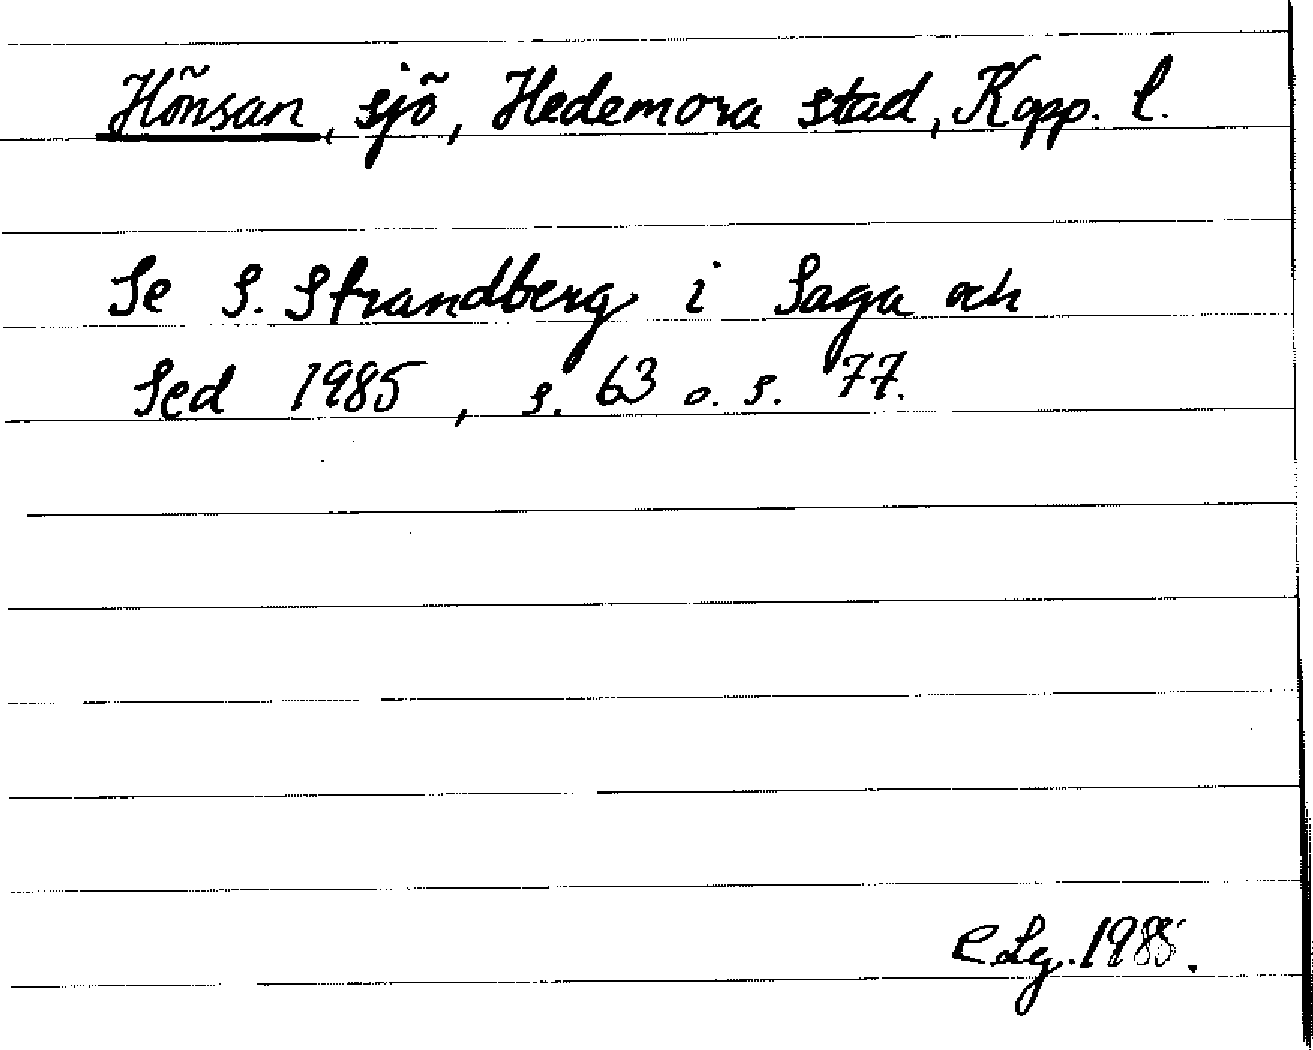 Hönsan, sjö, Hedemora stad, Kopp. l.
Se S. Strandberg i Saga och
Sed 1985, s. 63 o. s. 77.
E Lg. 1985.